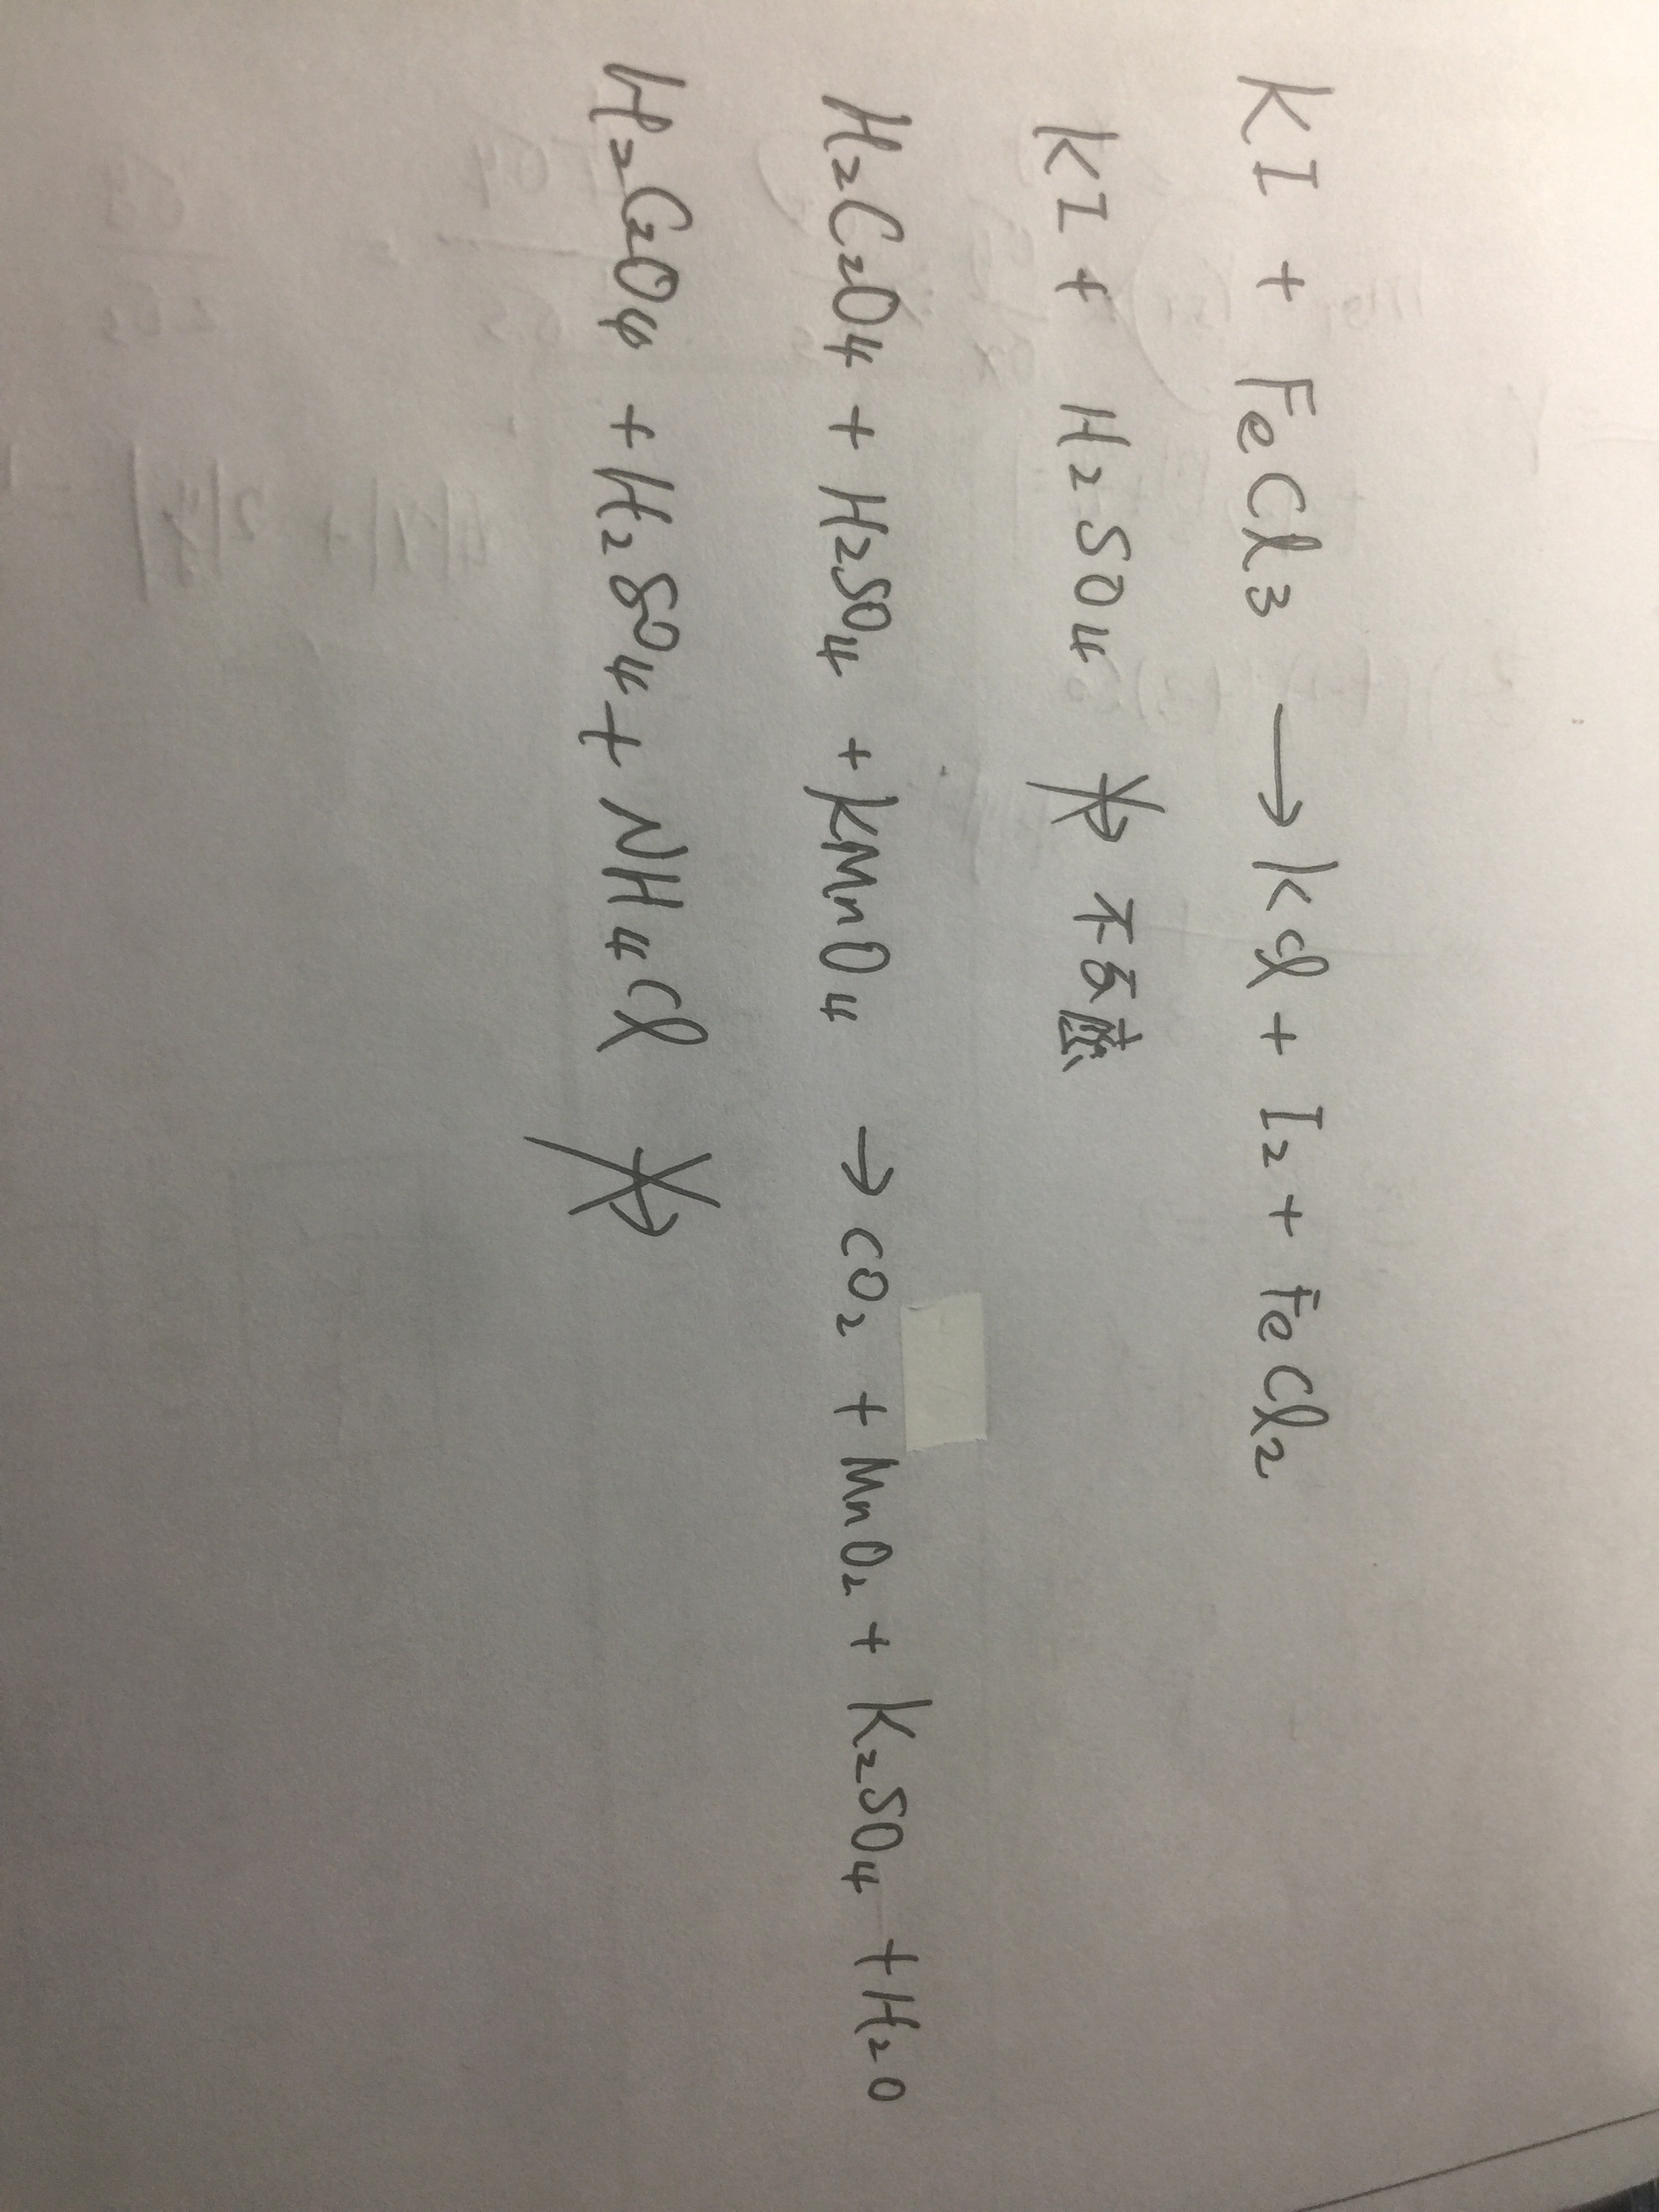 KI + FeCl₃ → KCl + I₂ + FeCl₂
KI + H₂SO₄ ↛ 不反應
H₂C₂O₄ + H₂SO₄ + KMnO₄ → CO₂ + MnO₂ + K₂SO₄ + H₂O
H₂C₂O₄ + H₂SO₄ + NH₄Cl ↛